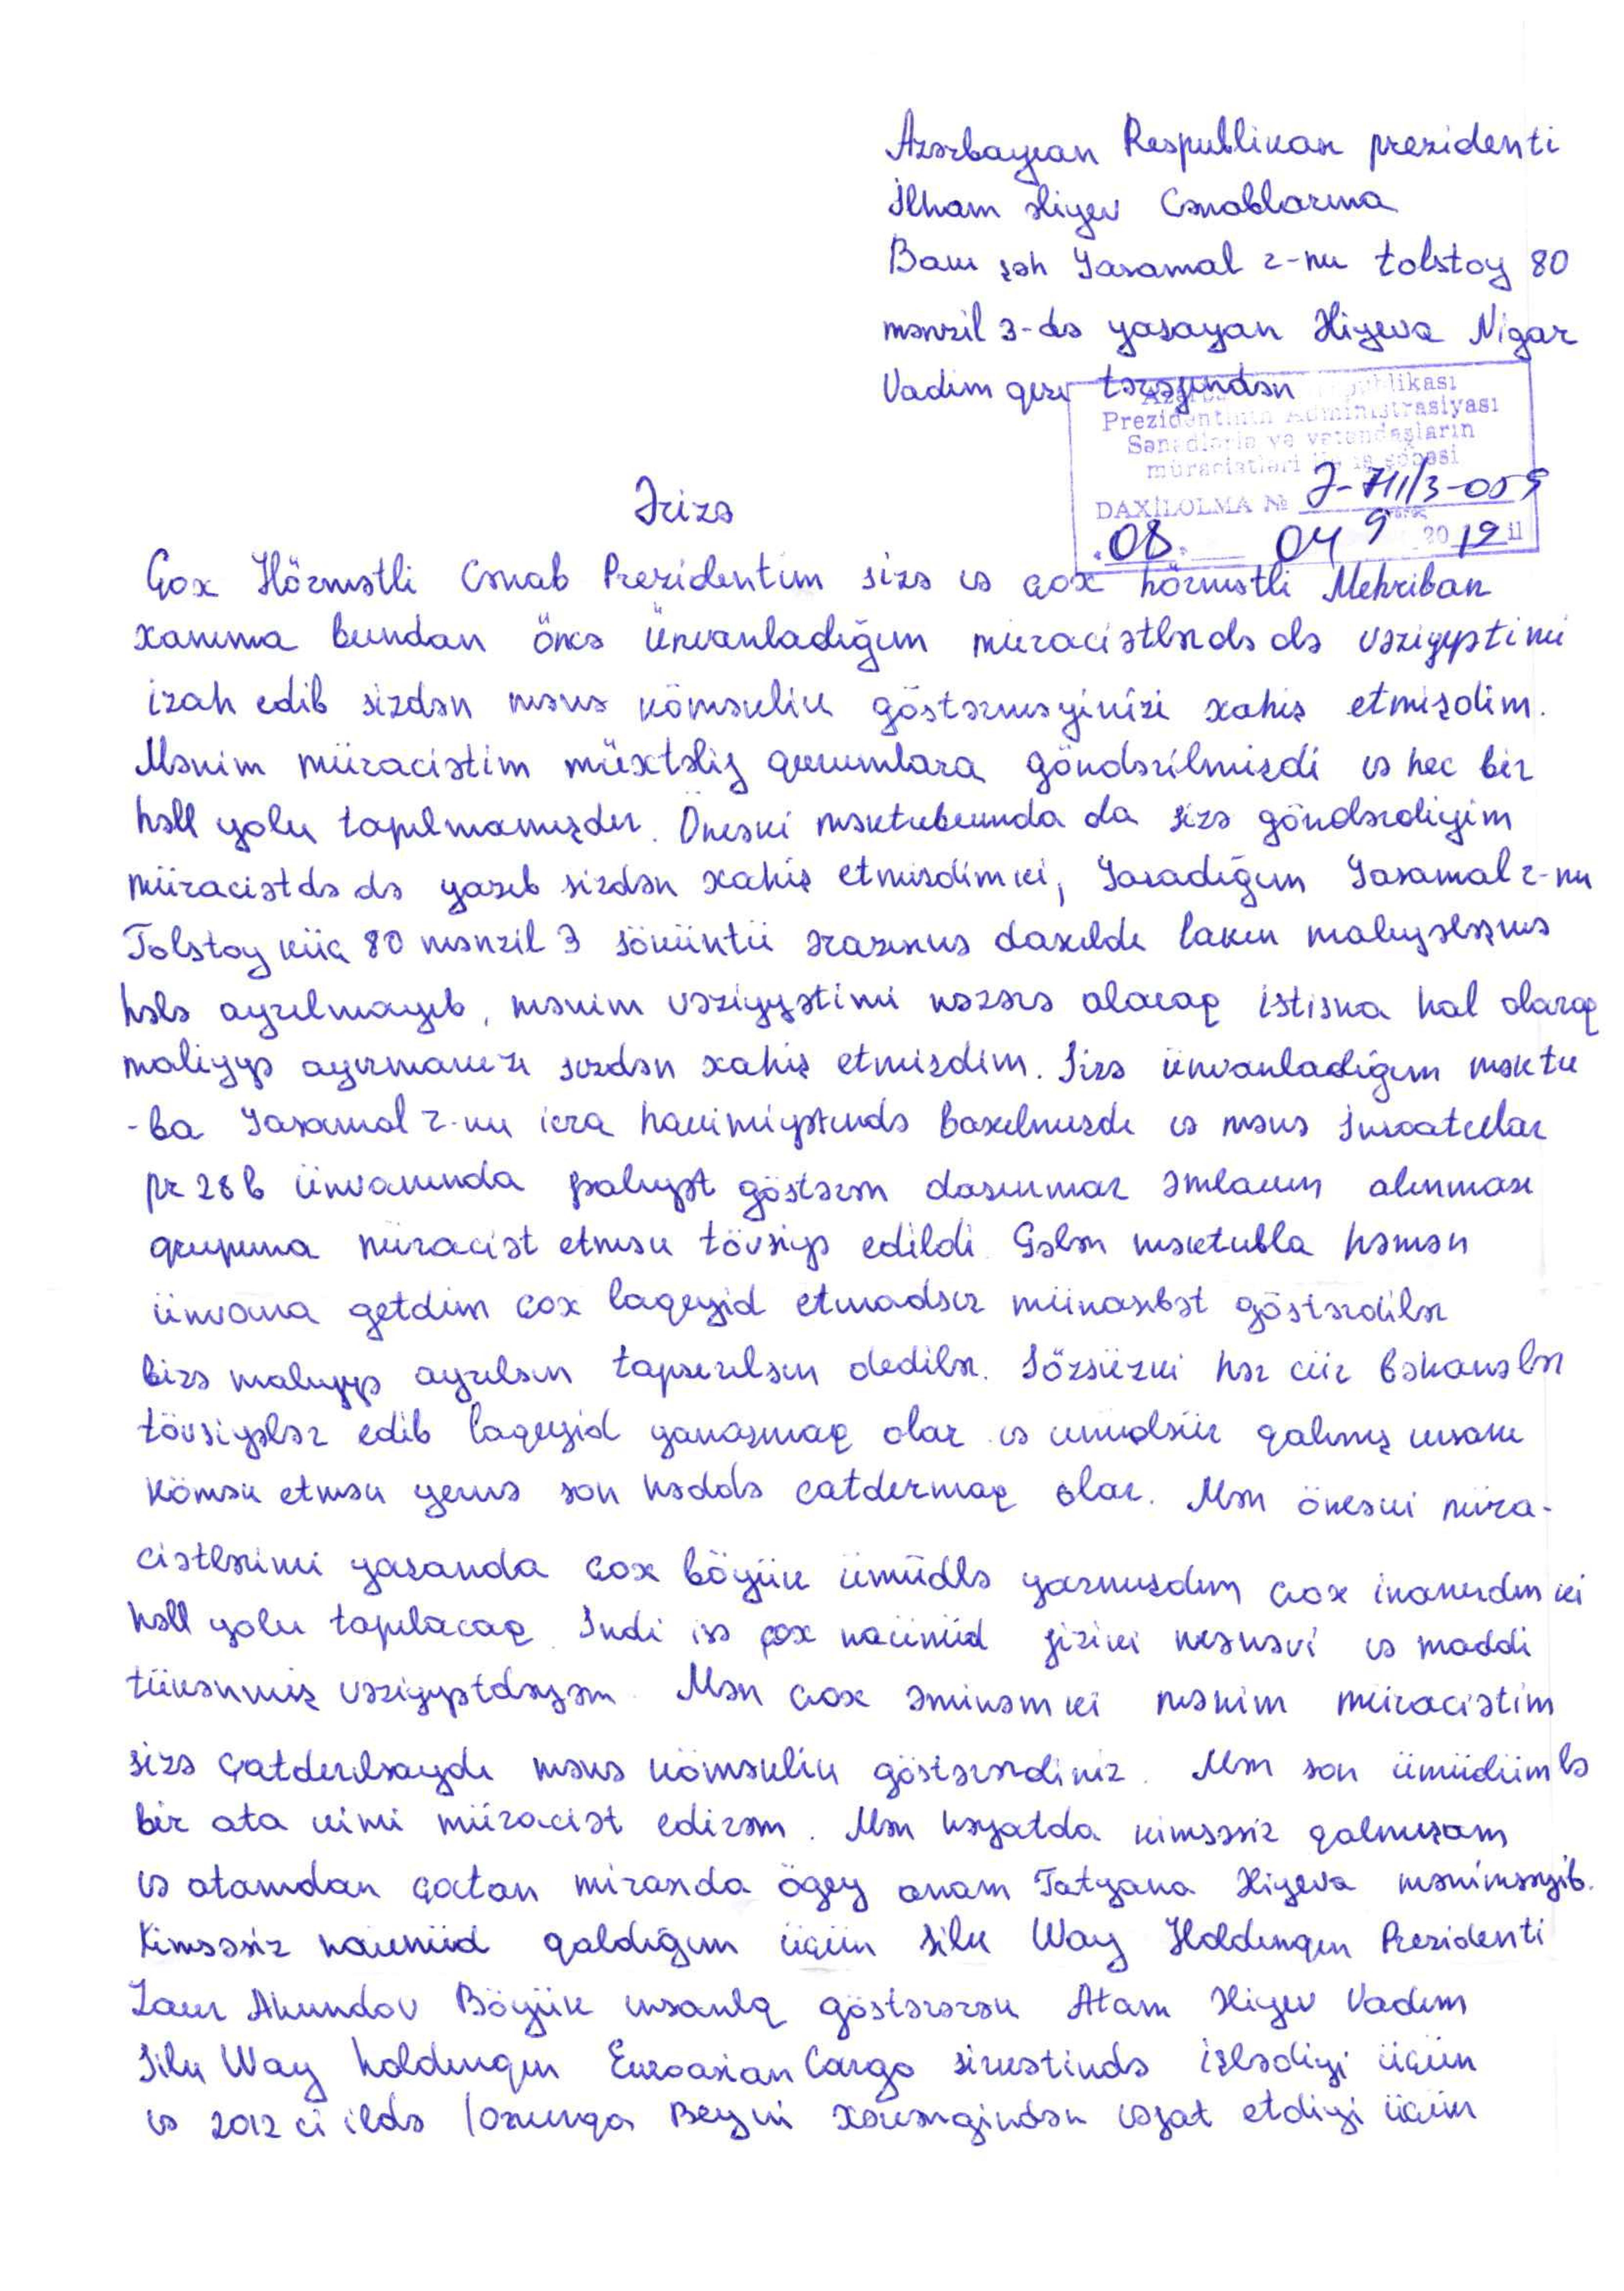 Azərbaycan Respublikası prezidenti
İlham Əliyev Cənablarına
Bakı şəh Yasamal r-nu tolstoy 80
mənzil 3-də yaşayan Əliyeva Nigar
Vadim qızı tərəfindən
Azərbaycan Respublikası
Prezidentinin Administrasiyası
Sənədlərlə və vətəndaşların
müraciətləri ilə iş şöbəsi
DAXİLOLMA №
08. 04 2019 il
Ərizə
Çox Hörmətli Cənab Prezidentim sizə və çox hörmətli Mehriban
xanıma bundan öncə ünvanladığım müraciətlərdə də vəziyyətimi
izah edib sizdən mənə köməklik göstərməyinizi xahiş etmişdim.
Mənim müraciətim müxtəlif qurumlara göndərilmişdi və hec bir
həll yolu tapılmamışdır. Öncəki məktubumda da sizə göndərdiyim
müraciətdə də yazıb sizdən xahiş etmişdimki, Yaşadığım Yasamal r-nu
Tolstoy küç 80 mənzil 3 söküntü ərazisinə daxildi lakin maliyələşmə
hələ ayrılmayıb, mənim vəziyyətimi nəzərə alacaq istisna hal olaraq
maliyyə ayırmanızı sizdən xahiş etmişdim. Sizə ünvanladığım məktu
-ba Yasamal r-nu icra hakimiyətində baxılmışdı və mənə İnşaatcılar
pr 28 b ünvanında fəaliyət göstərən daşınmaz əmlakın alınması
qrupuna müraciət etmək tövsiyə edildi. Gələn məktubla həmən
ünvana getdim çox laqeyid etinadsız münasibət göstərdilər
bizə maliyyə ayrılsın tapşırılsın dedilər. Sözsüzki hər cür bəhanələr
tövsiyələr edib laqeyid yanaşmaq olar və ümidsüz qalmış insanı
kömək etmək yerinə son həddə catdırmaq olar. Mən öncəki müra-
ciətlərimi yazanda çox böyük ümüdlə yazmışdım çox inanırdım ki
həll yolu tapılacaq. İndi isə çox naümüd fiziki mənəvi və maddi
tükənmiş vəziyyətdəyəm. Mən çox əminəm ki mənim müraciətim
sizə çatdırılsaydı mənə köməklik göstərərdiniz. Mən son ümüdümlə
bir ata kimi müraciət edirəm. Mən həyatda kimsəsiz qalmışam
və atamdan çatan mirasıda ögey anam Tatyana Əliyeva mənimsəyib.
Kimsəsiz naümüd qaldığım üçün Silk Way Holdinqin Prezidenti
Zaur Akundov Böyük insanlıq göstərərək Atam Əliyev Vadim
Silk Way holdinqin Euroasian Cargo şirkətində işlədiyi üçün
və 2012 ci ildə Beyin xərcəngindən vəfat etdiyi üçün